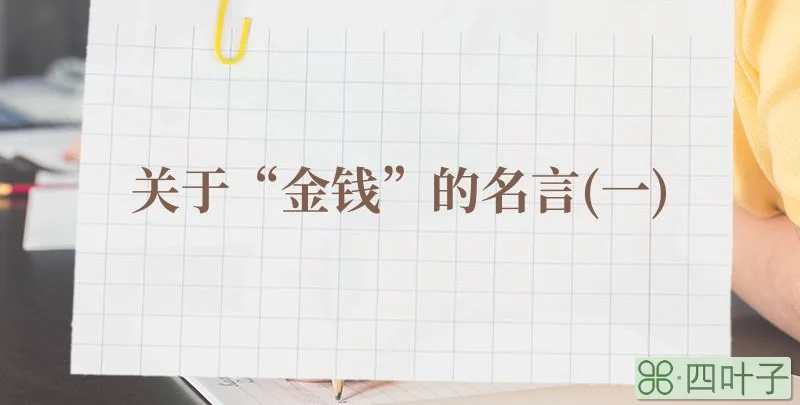 关于“金钱”的名言(一)
⌘·四叶子